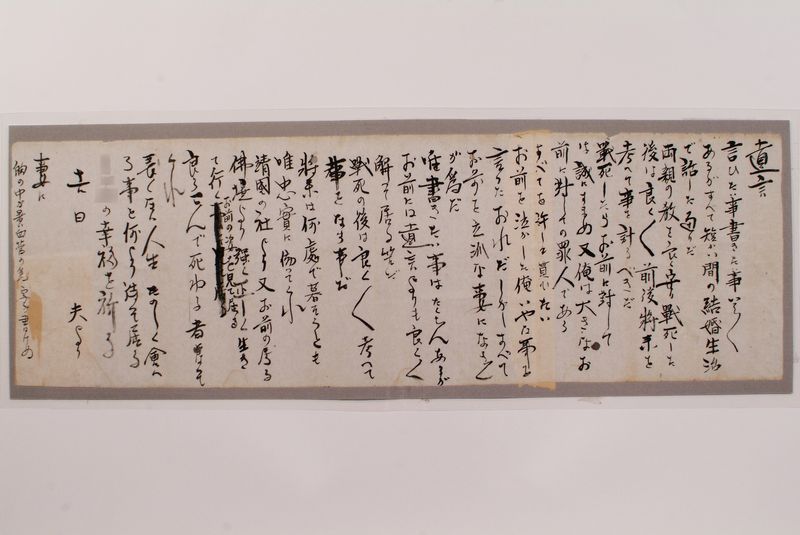 遺言
言ひたい事書きたい事
あるがすべて短い間の結婚生活
で話した通りだ
両親の教を良く守り戦死した
後は良く〱前後将来を
考へて事を計るべきだ
戦死したらお前に対して
は誠にすまぬ 又俺は大きなお
前に対しての罪人である
すべてを許して貰ひたい
お前を泣かした俺 いやな事を
言ったおれだ しかしすべて
お前を立派な妻になさん
が為だ
唯書きたい事はたくさんあるが
お前には遺言よりも良く〱
解って居る筈だ
戦死の後は良く〱考へて
事をなす事だ
将来は何處で暮さうとも
唯忠實に働いてくれ
靖國の社より又お前の居る
佛壇より強く正しく生き
て行くお前の姿を見て居る
良く喜んで死ねる者
くれ
長い真人生 たのしく會へ
る事を何より待って居る
の幸福を祈る
吉日 夫より
妻に